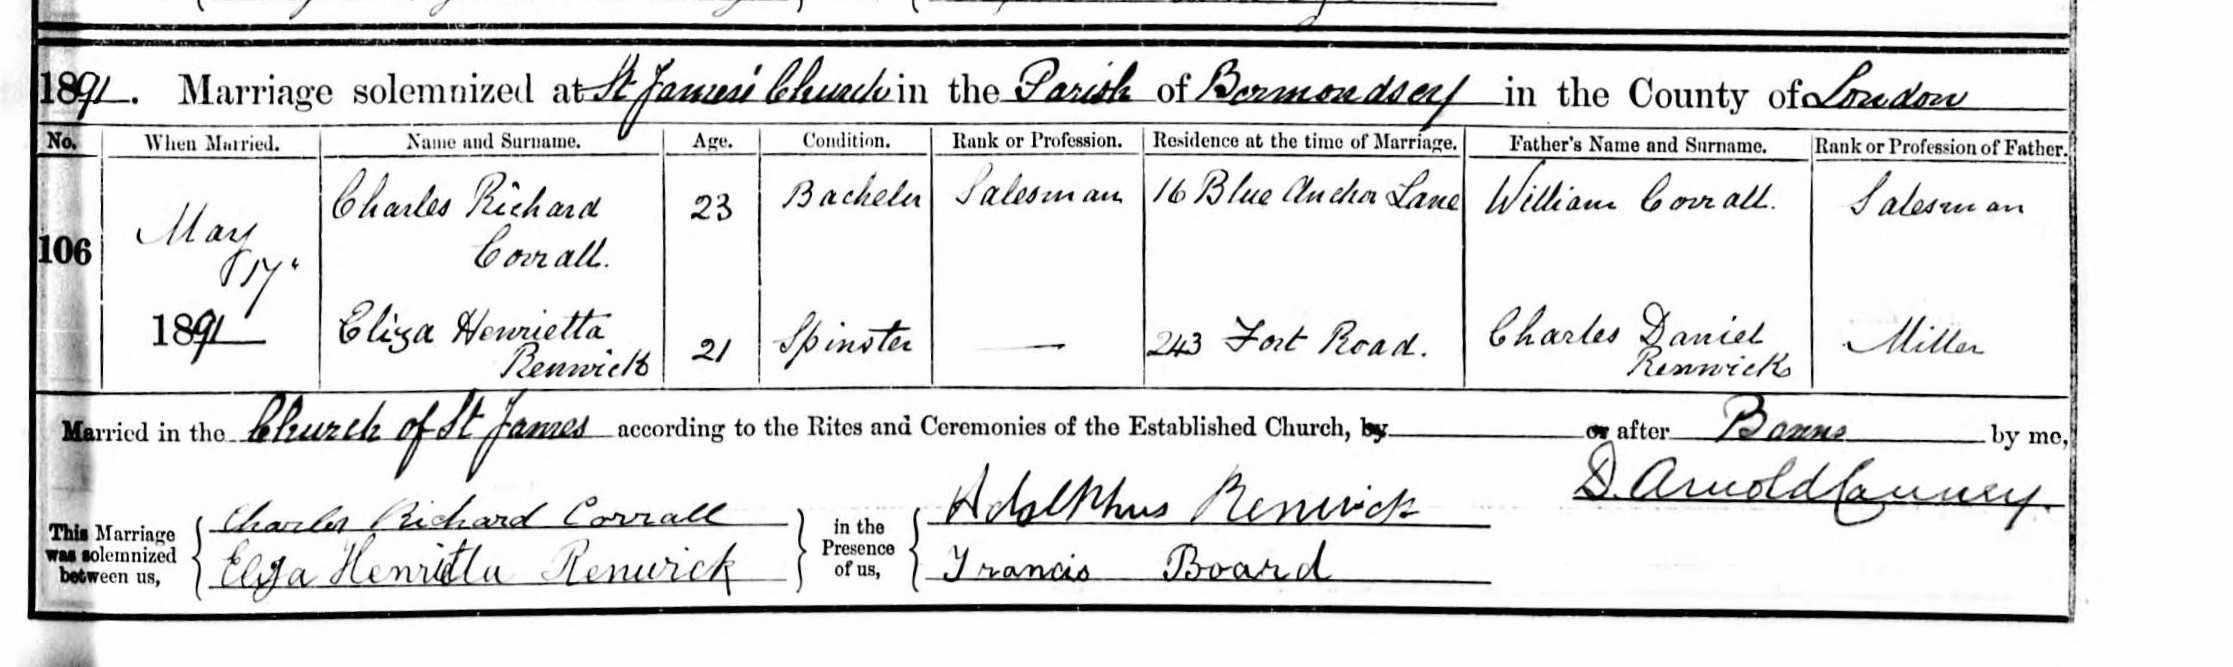 1891. Marriage solemnized at St James' Church in the Parish of Bermondsey in the County of London
No. When Married. Name and Surname. Age. Condition. Rank or Profession. Residence at the time of Marriage. Father's Name and Surname. Rank or Profession of Father.
106 May 17. 1891 Charles Richard Corrall. 23 Bachelor Salesman 16 Blue Anchor Lane William Corrall. Salesman
Eliza Henrietta Renwick 21 Spinster — 243 Fort Road. Charles Daniel Renwick Miller
Married in the Church of St James according to the Rites and Ceremonies of the Established Church, by or after Banns by me,
D. Arnold
This Marriage was solemnized between us, Charles Richard Corrall in the Presence of us, Adolphus Renwick
Eliza Henrietta Renwick Francis Board